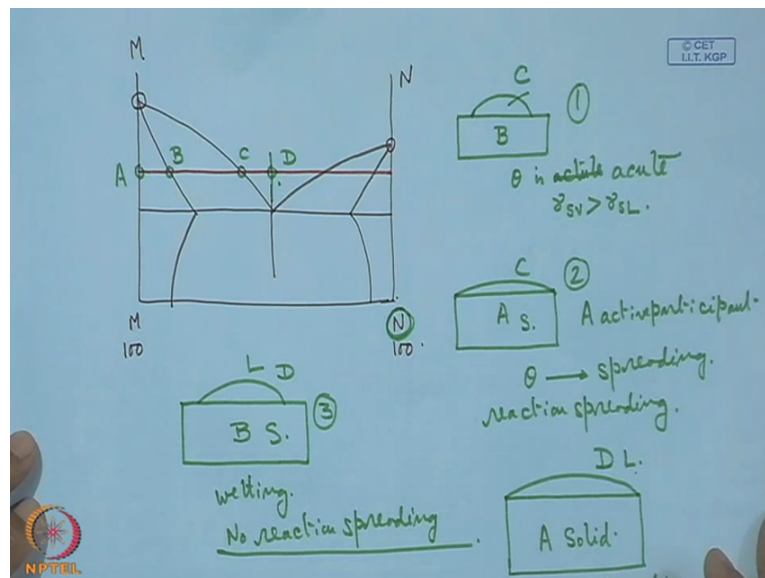 © CET
I.I.T. KGP
M
N
A
B
C
D
M
100
N
100.
C
B
1
θ is acute
γSV > γSL.
C
2
A S.
A active participant.
θ → spreading.
reaction spreading.
L D
B S.
3
wetting.
No reaction spreading.
D L.
A Solid.
NPTEL